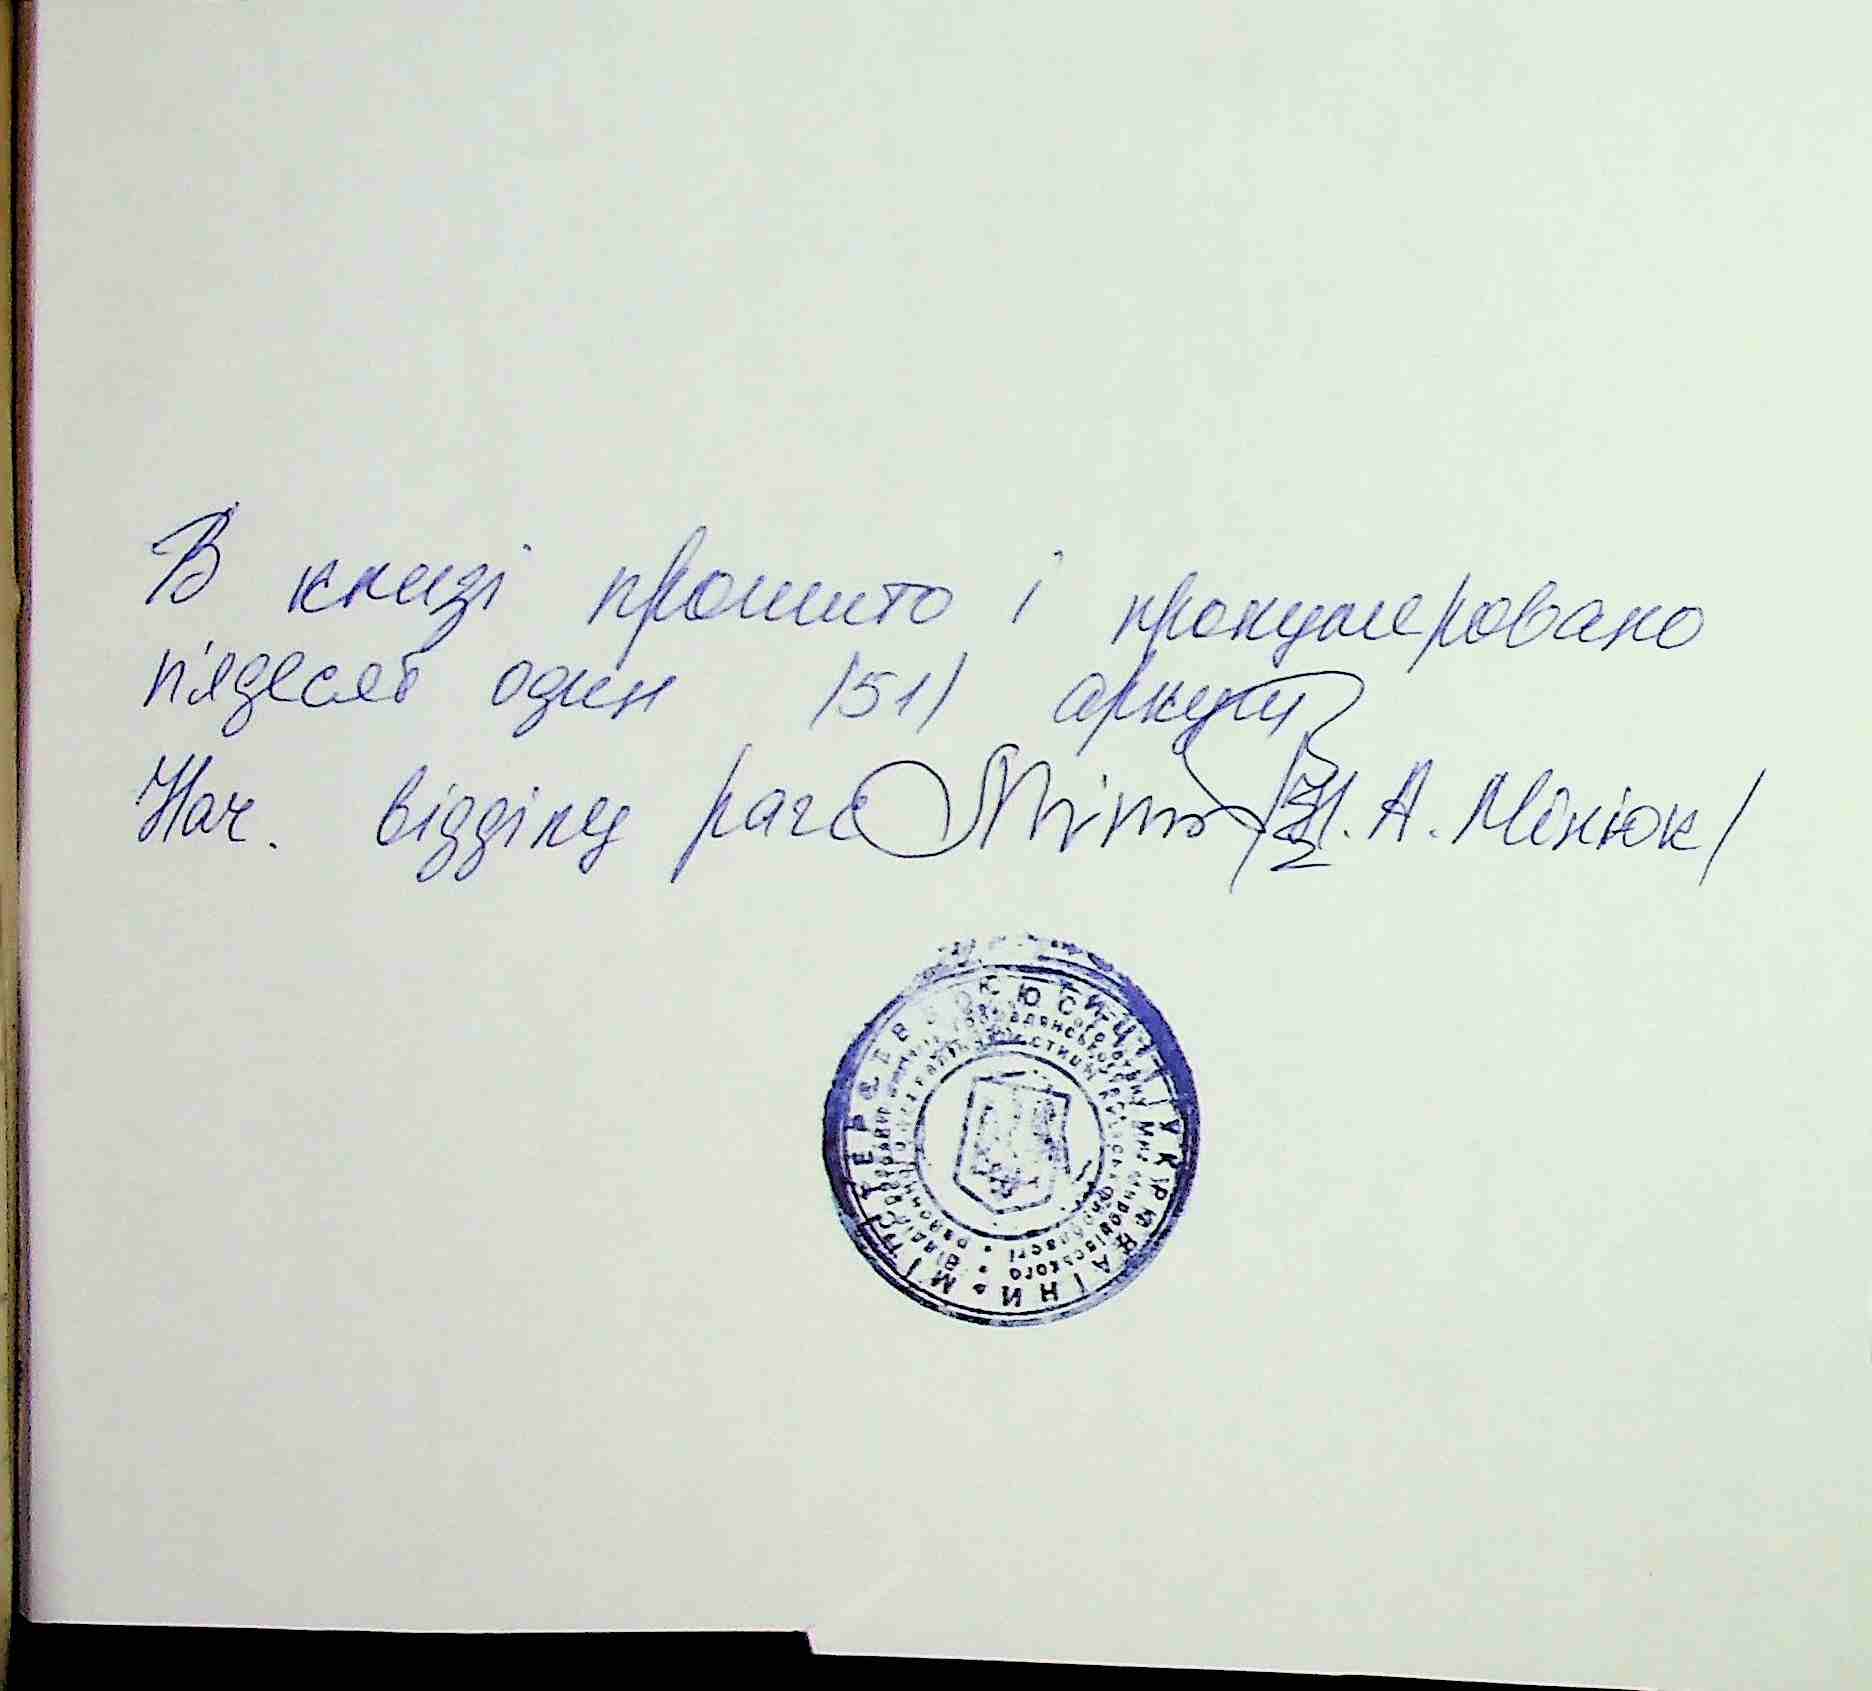 В книзі прошито і пронумеровано
п'ядесят один /51/ аркуш
Нач. відділу рагс А. Мінюк/
МІНІСТЕРСТВО ЮСТИЦІЇ УКРАЇНИ